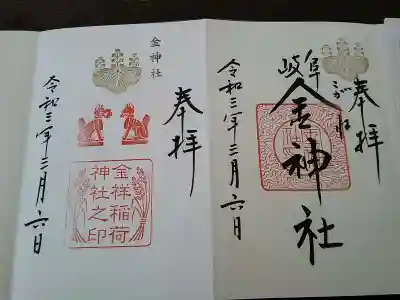 奉拝
こがね
岐阜
金神社
令和三年三月六日
奉拝
金神社
金祥稲荷
神社之印
令和三年三月六日